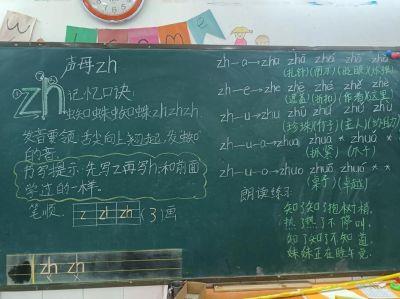 声母zh
zh
记忆口诀:
蜘蛛蜘蛛zhzhzh
发音要领:舌尖向上翘起,发蜘
的音。
书写提示:先写z再写h,和前面
学过的一样。
笔顺 z zh zh (3)画
zh zh
zh—a→zha zhā zhá zhǎ zhà
zh—e→zhe zhē zhé zhě zhè
(遮盖)(折扣)(作者)(这里)
zh—u→zhu zhū zhú zhǔ zhù
(珍珠)(竹子)(主人)
zh—u—a→zhua zhuā * zhuǎ *
(抓紧)(爪子)
zh—u—o→zhuo zhuō zhuó * *
(桌子)(卓越)
朗读练习
知了知了抱树梢,
热了热了不停叫,
知了知了不知道,
妹妹正在睡午觉